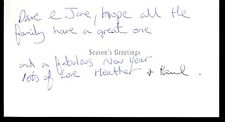 Dave & Jane, hope all the
family have a great one
Season's Greetings
and a fabulous New Year
lots of love Heather & Paul.